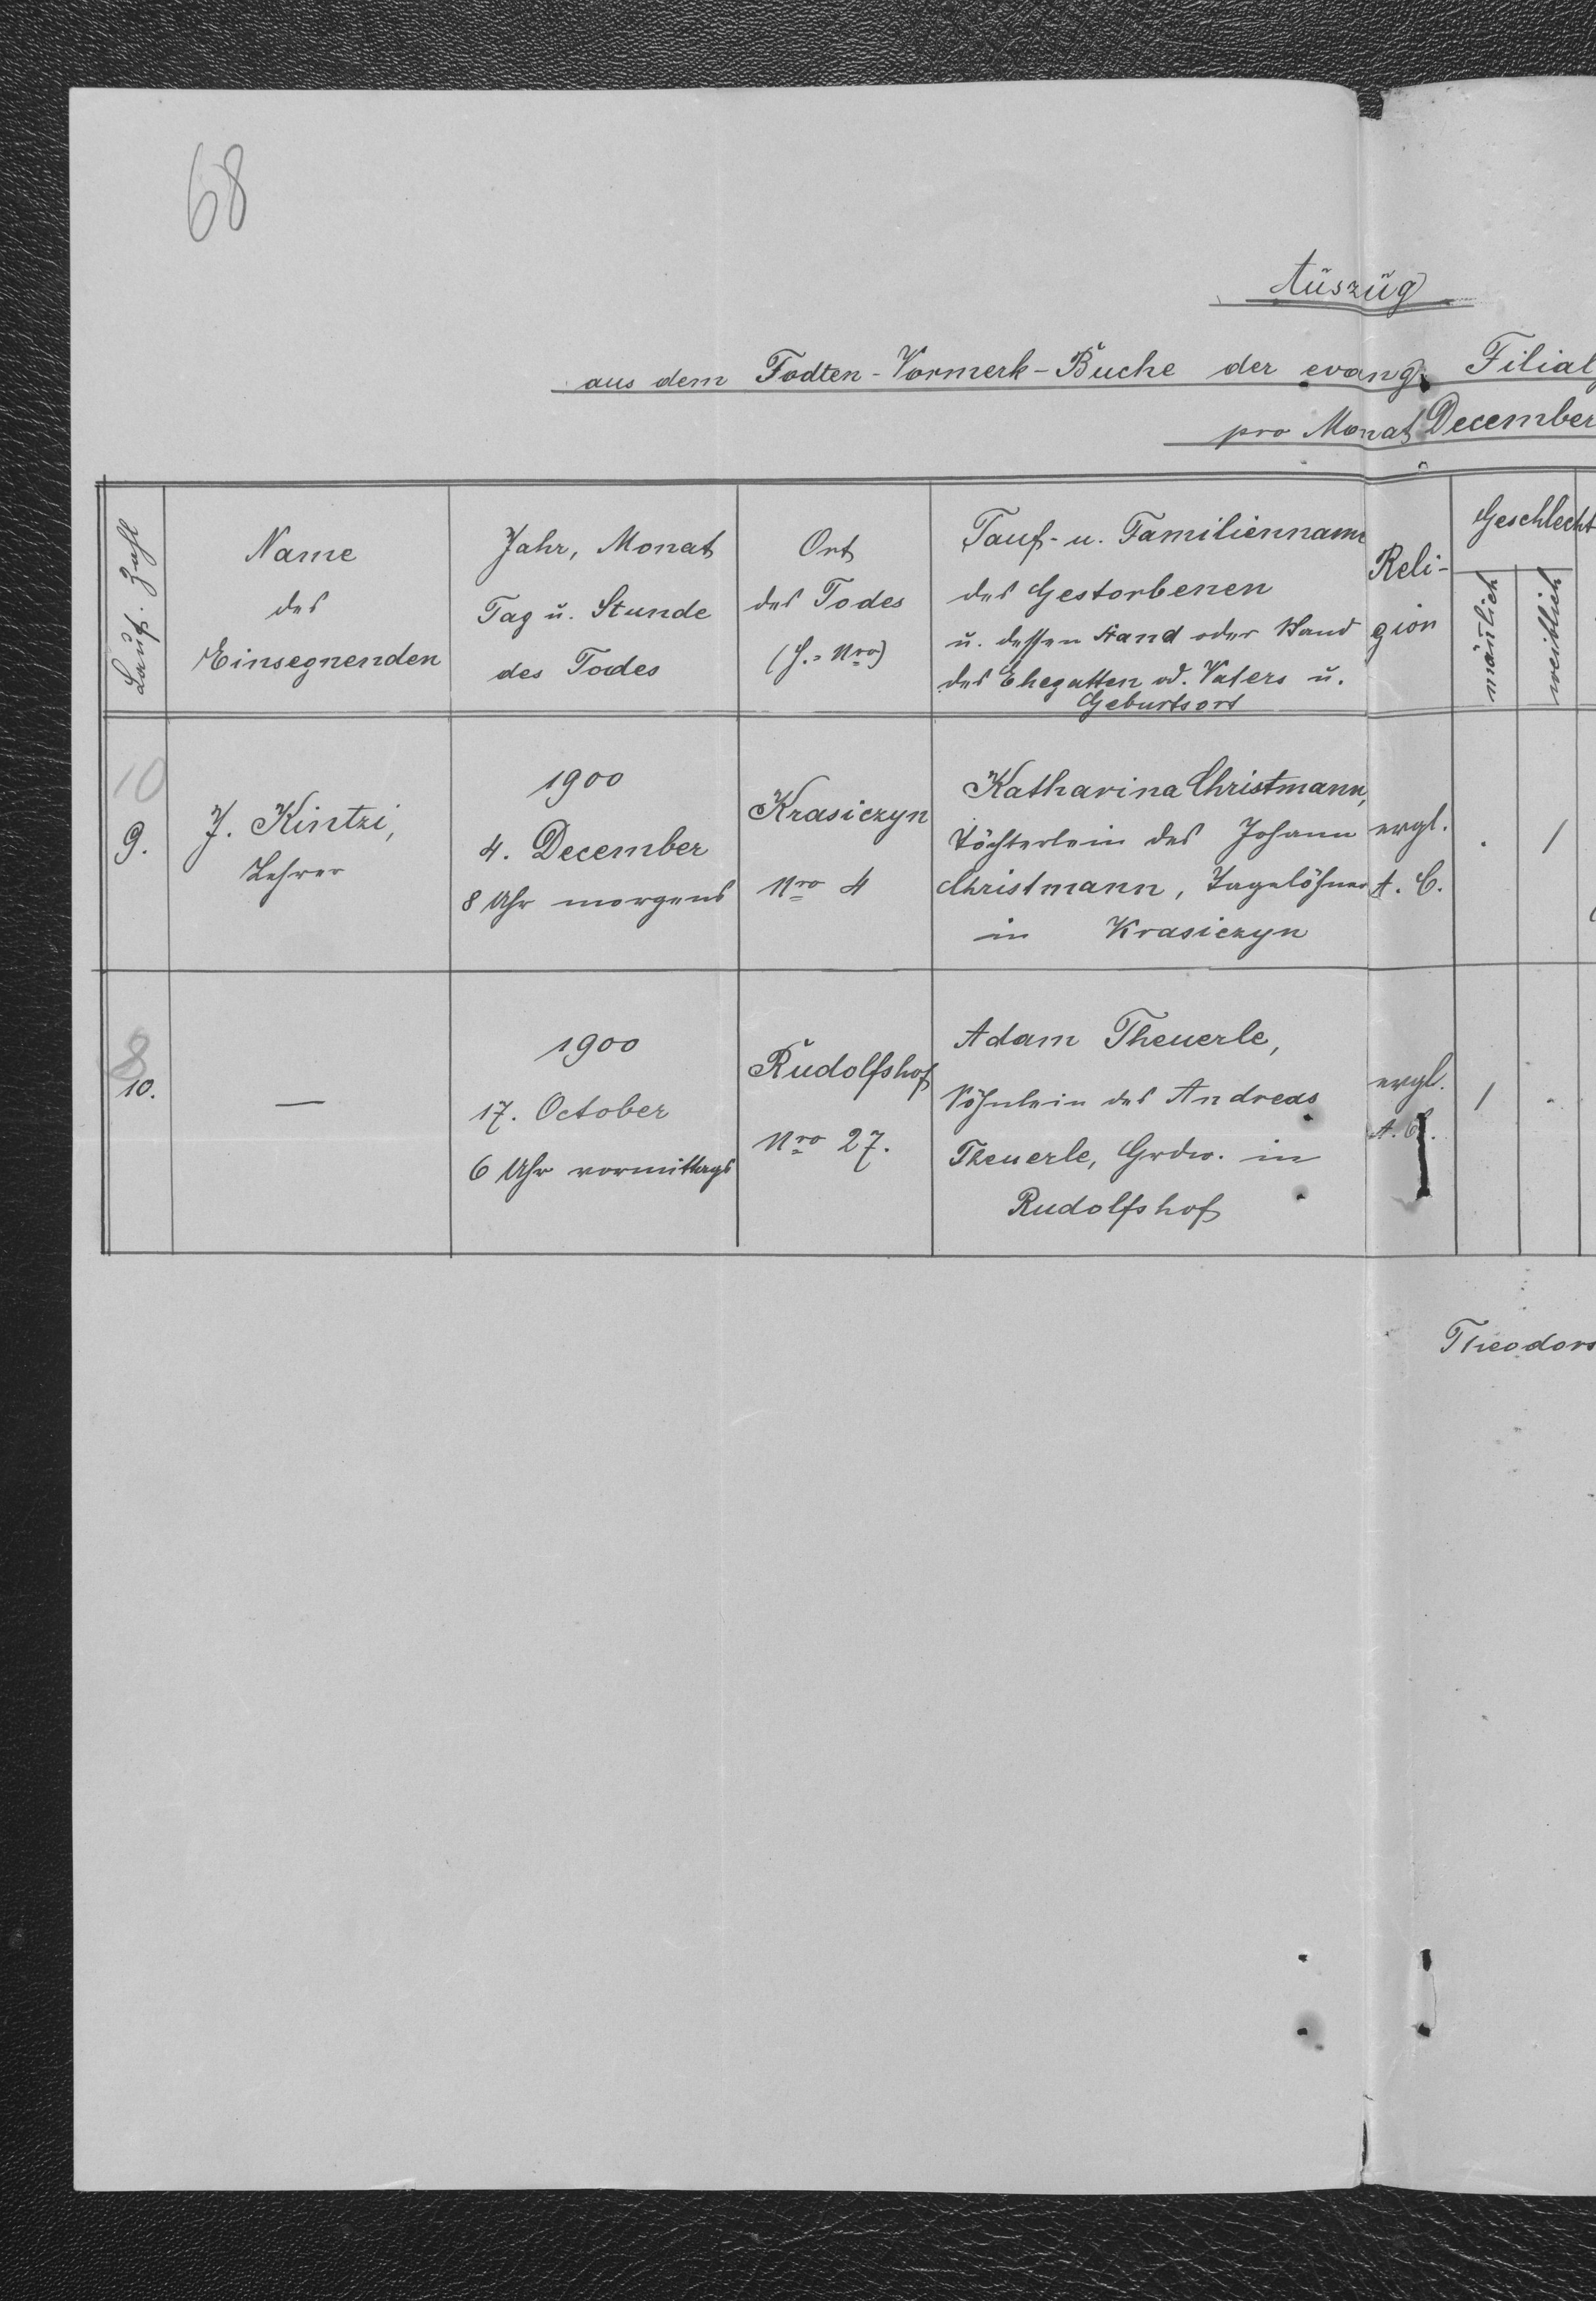 68
Auszug
aus dem Todten-Vormerk-Buche der evang. Filial
pro Monat December
Lauf. Zahl
Name
des
Einsegnenden
Jahr, Monat
Tag u. Stunde
des Todes
Ort
des Todes
(H.=Nro)
Tauf- u. Familienname
des Gestorbenen
u. dessen Stand oder Stand
des Ehegatten od. Vaters u.
Geburtsort
Reli-
gion
Geschlecht
mänlich
weiblich
10
9.
J. Kintzi,
Lehrer
1900
4. December
8 Uhr morgens
Krasiczyn
Nro 4
Katharina Christmann,
Töchterlein des Johann
Christmann, Tagelöhner
in Krasiczyn
evgl.
A. C.
.
1
8
10.
—
1900
17. October
6 Uhr vormittags
Rudolfshof
Nro 27.
Adam Theuerle,
Söhnlein des Andreas
Theuerle, Grdw. in
Rudolfshof
evgl.
A. C.
1
.
Theodors